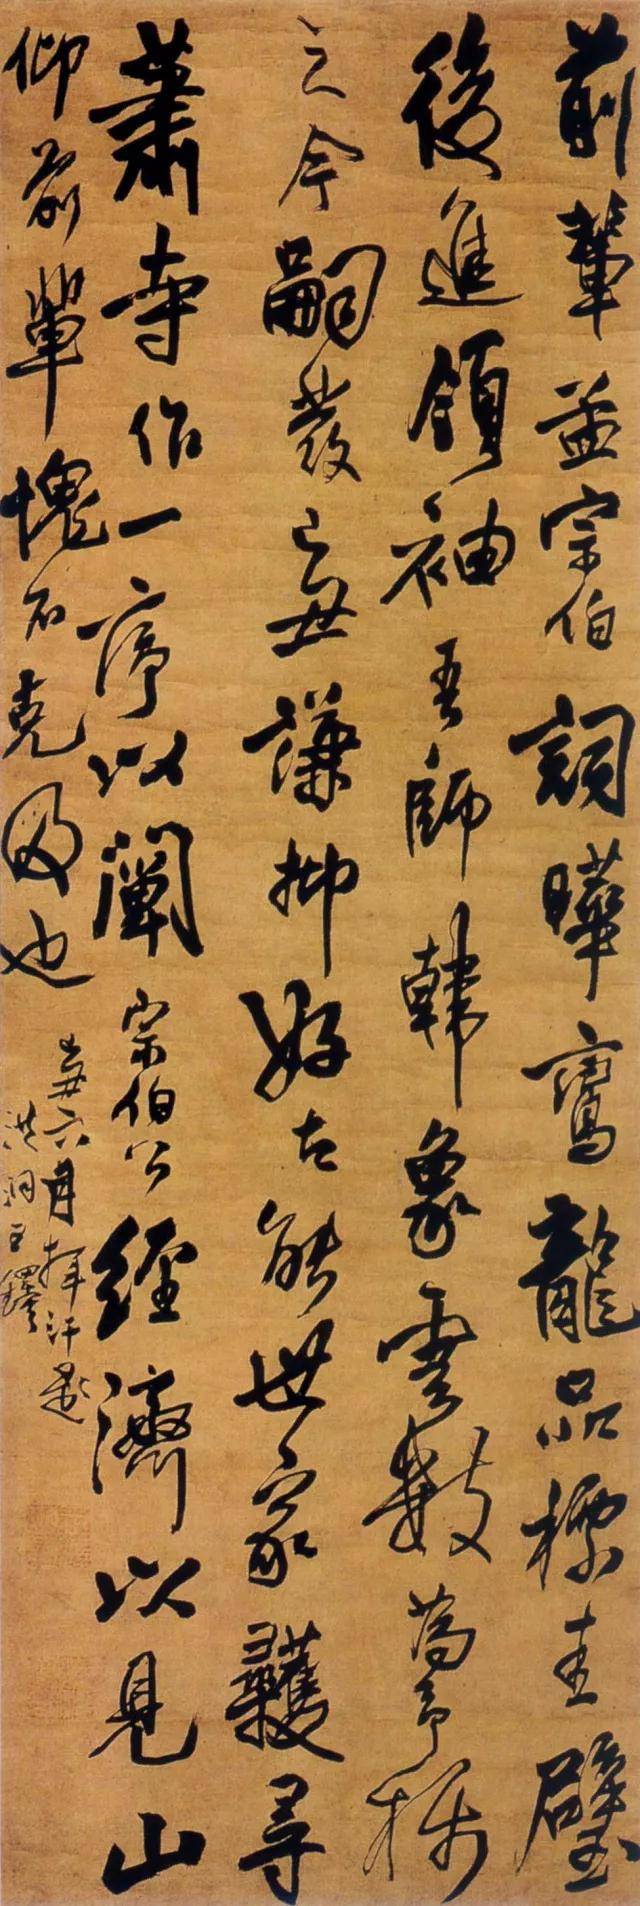 前輩孟宗伯詞曄鸞龍品標圭璧
後進領袖吾師韓象雲數為予稱
之今嗣發己丑謙抑好古能世家護尋
蕭寺作一序以闡宗伯公經濟以見山
仰前輩愧不克及也
丑六月揮汗題
洪洞王鐸